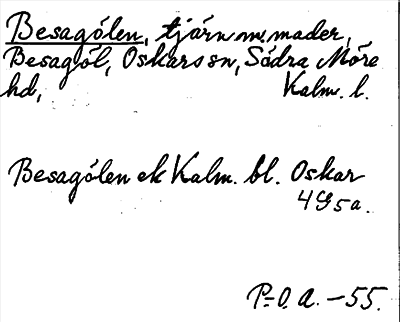 Besagólen, tjärn m. mader,
Besagól, Oskars sn, Södra Möre
hd, Kalm. l.
Besagólen ek Kalm. bl. Oskar
4G5a.
P-O. A. -55.